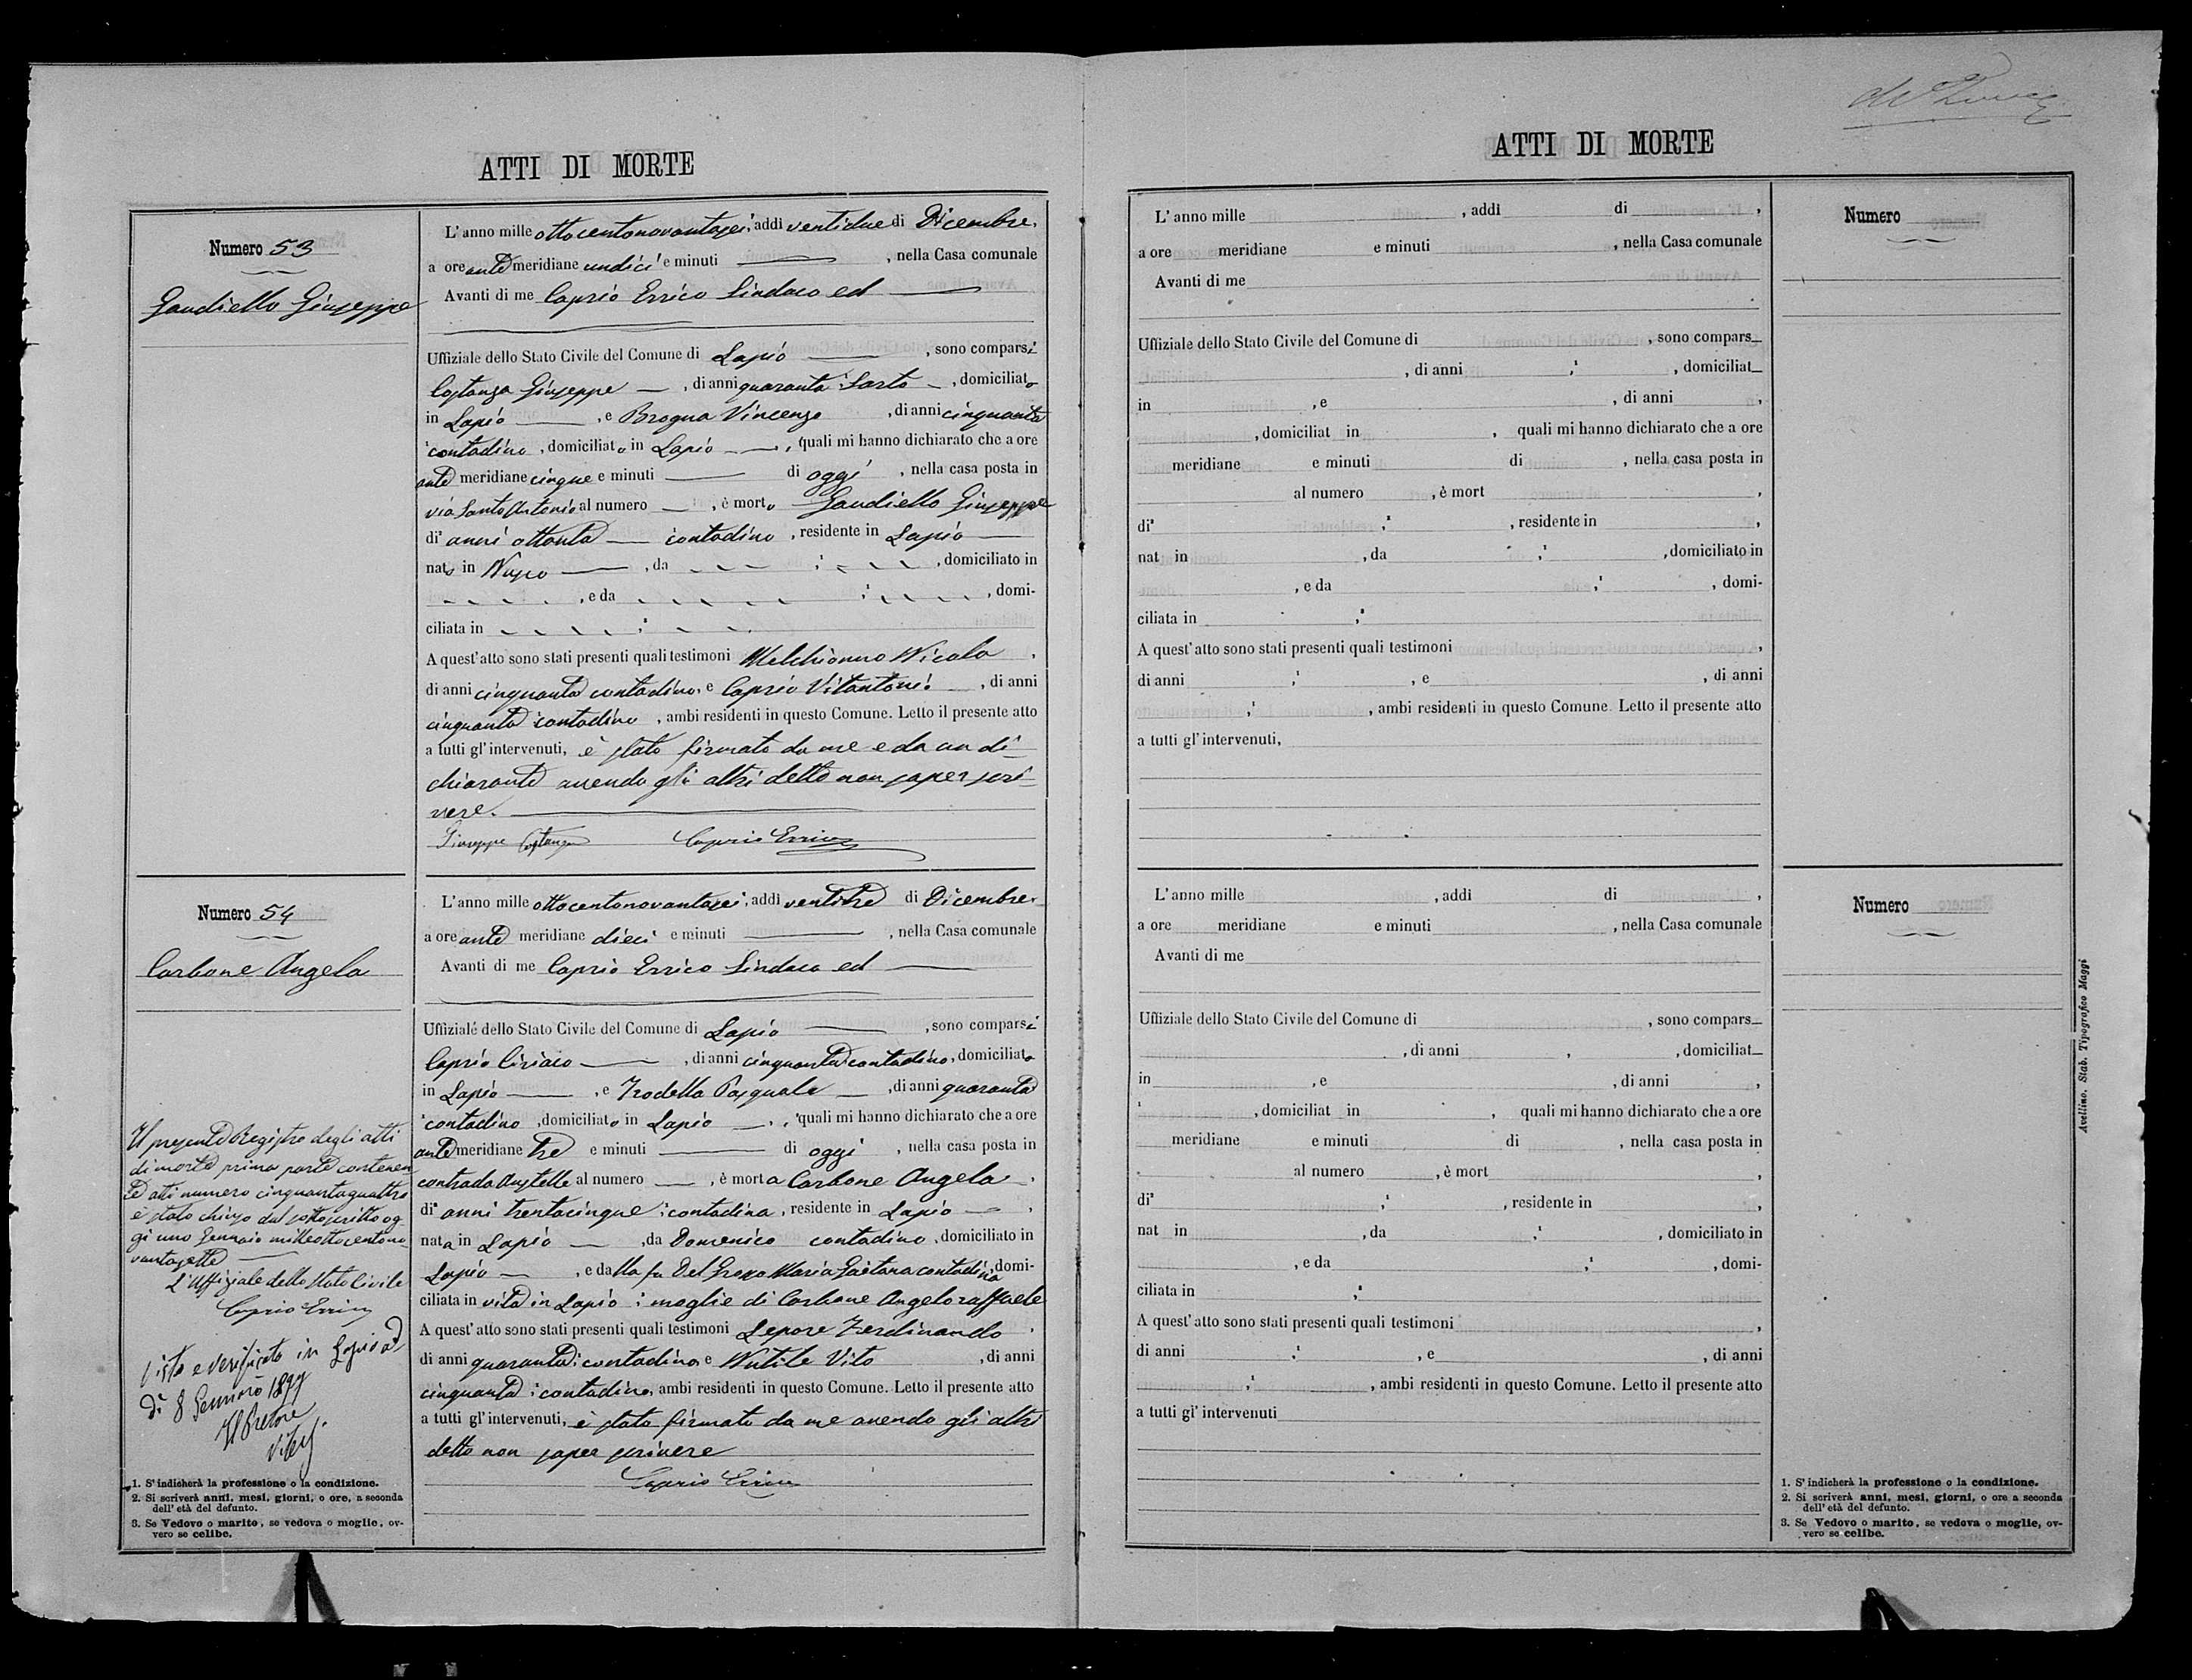 ATTI DI MORTE
Numero 53
Gaudiello Giuseppe
L' anno mille ottocentonovantasei, addi ventidue di Dicembre,
a ore ante meridiane undici e minuti , nella Casa comunale
Avanti di me Caprio Errico Sindaco ed
Uffiziale dello Stato Civile del Comune di Lapio , sono comparsi
Costanza Giuseppe , di anni quaranta Sarto , domiciliato
in Lapio , e Brogna Vincenzo , di anni cinquanta
contadino , domiciliato in Lapio , quali mi hanno dichiarato che a ore
ante meridiane cinque e minuti di oggi , nella casa posta in
via Santo Antonio al numero , è morto Gaudiello Giuseppe
di anni ottanta contadino , residente in Lapio
nato in , da ; , domiciliato in
, e da ; , domi-
ciliata in ;
A quest' atto sono stati presenti quali testimoni Melchionno Nicola ,
di anni cinquanta contadino, e Caprio Vitantonio , di anni
cinquanta contadino , ambi residenti in questo Comune. Letto il presente atto
a tutti gl' intervenuti, è stato firmato da me e da un di-
chiarante avendo gli altri detto non saper scri-
vere.
Giuseppe Costanza Caprio Errico
Numero 54
Carbone Angela
L' anno mille ottocentonovantasei, addi ventitre di Dicembre,
a ore ante meridiane dieci e minuti , nella Casa comunale
Avanti di me Caprio Errico Sindaco ed
Uffiziale dello Stato Civile del Comune di Lapio , sono comparsi
Caprio Ciriaco , di anni cinquanta contadino, domiciliato
in Lapio , e Trodella Pasquale , di anni quaranta
contadino , domiciliato in Lapio , quali mi hanno dichiarato che a ore
ante meridiane tre e minuti di oggi , nella casa posta in
contrada al numero , è morta Carbone Angela ,
di anni trentacinque ; contadina , residente in Lapio ,
nata in Lapio , da Domenico contadino , domiciliato in
Lapio , e dalla fu Del Grosso Maria Gaetana contadina, domi-
ciliata in vita in Lapio ; moglie di Carbone Angelo raffaele
A quest' atto sono stati presenti quali testimoni Lepore Ferdinando ,
di anni quaranta ; contadino, e Nutile Vito , di anni
cinquanta ; contadino, ambi residenti in questo Comune. Letto il presente atto
a tutti gl' intervenuti, è stato firmato da me avendo gli altri
detto non saper scrivere
Caprio Errico
Il presente Registro degli atti
di morte prima parte contenen-
te atti numero cinquantaquattro
è stato chiuso dal sottoscritto og-
gi uno Gennaio milleottocentono-
vantasette
L'Uffiziale dello Stato Civile
Caprio Errico
Visto e verificato in Lapio ad
dì 8 Gennaio 1897
Il Pretore
1. S' indicherà la professione o la condizione.
2. Si scriverà anni, mesi, giorni, o ore, a seconda
dell' età del defunto.
3. Se Vedovo o marito, se vedova o moglie, ov-
vero se celibe.
ATTI DI MORTE
L' anno mille , addi di ,
a ore meridiane e minuti , nella Casa comunale
Avanti di me
Uffiziale dello Stato Civile del Comune di , sono compars
, di anni ; , domiciliat
in , e , di anni ,
, domiciliat in , quali mi hanno dichiarato che a ore
meridiane e minuti di , nella casa posta in
al numero , è mort ,
di² ;¹ , residente in ,
nat in , da ;¹ , domiciliato in
, e da ;¹ , domi-
ciliata in ;³
A quest' atto sono stati presenti quali testimoni ,
di anni ;¹ , e , di anni
;¹ , ambi residenti in questo Comune. Letto il presente atto
a tutti gl' intervenuti,
Numero
L' anno mille , addi di ,
a ore meridiane e minuti , nella Casa comunale
Avanti di me
Uffiziale dello Stato Civile del Comune di , sono compars
, di anni , , domiciliat
in , e , di anni ,
, domiciliat in , quali mi hanno dichiarato che a ore
meridiane e minuti di , nella casa posta in
al numero , è mort ,
di² ;¹ , residente in ,
nat in , da ;¹ , domiciliato in
, e da ;¹ , domi-
ciliata in ;³
A quest' atto sono stati presenti quali testimoni ,
di anni ;¹ , e , di anni
;¹ , ambi residenti in questo Comune. Letto il presente atto
a tutti gl' intervenuti
Numero
1. S' indicherà la professione o la condizione.
2. Si scriverà anni, mesi, giorni, o ore a seconda
dell' età del defunto.
3. Se Vedovo o marito, se vedova o moglie, ov-
vero se celibe.
Avellino. Stab. Tipografico Maggi